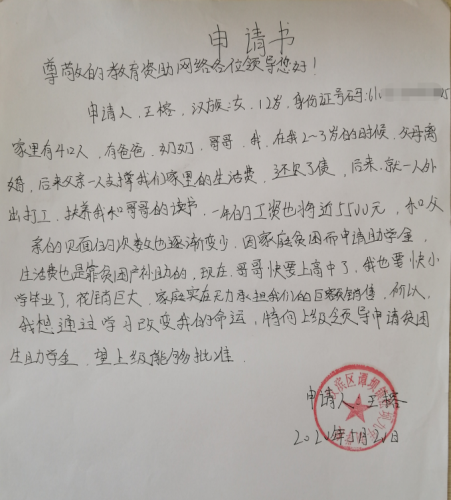 申请书
尊敬的教育资助网络各位领导您好！
申请人.王榕，汉族.女，12岁.身份证号码:610
家里有4口人，有爸爸.奶奶.哥哥.我，在我2~3岁的时候.父母离
婚，后来父亲一人支撑我们家里的生活费，还欠了债，后来.就一人外
出打工，扶养我和哥哥的读书，一年的工资也将近5500元，和父
亲的见面的次数也逐渐变少，因家庭贫困而申请助学金，
生活费也是靠贫困户补助的，现在.哥哥快要上高中了，我也要快小
学毕业了，花销巨大，家庭实在无力承担我们的巨额销售，所以，
我想通过学习改变我的命运，特向上级领导申请贫困
生助学金.望上级能够批准.
申请人.王榕
2020年5月20日